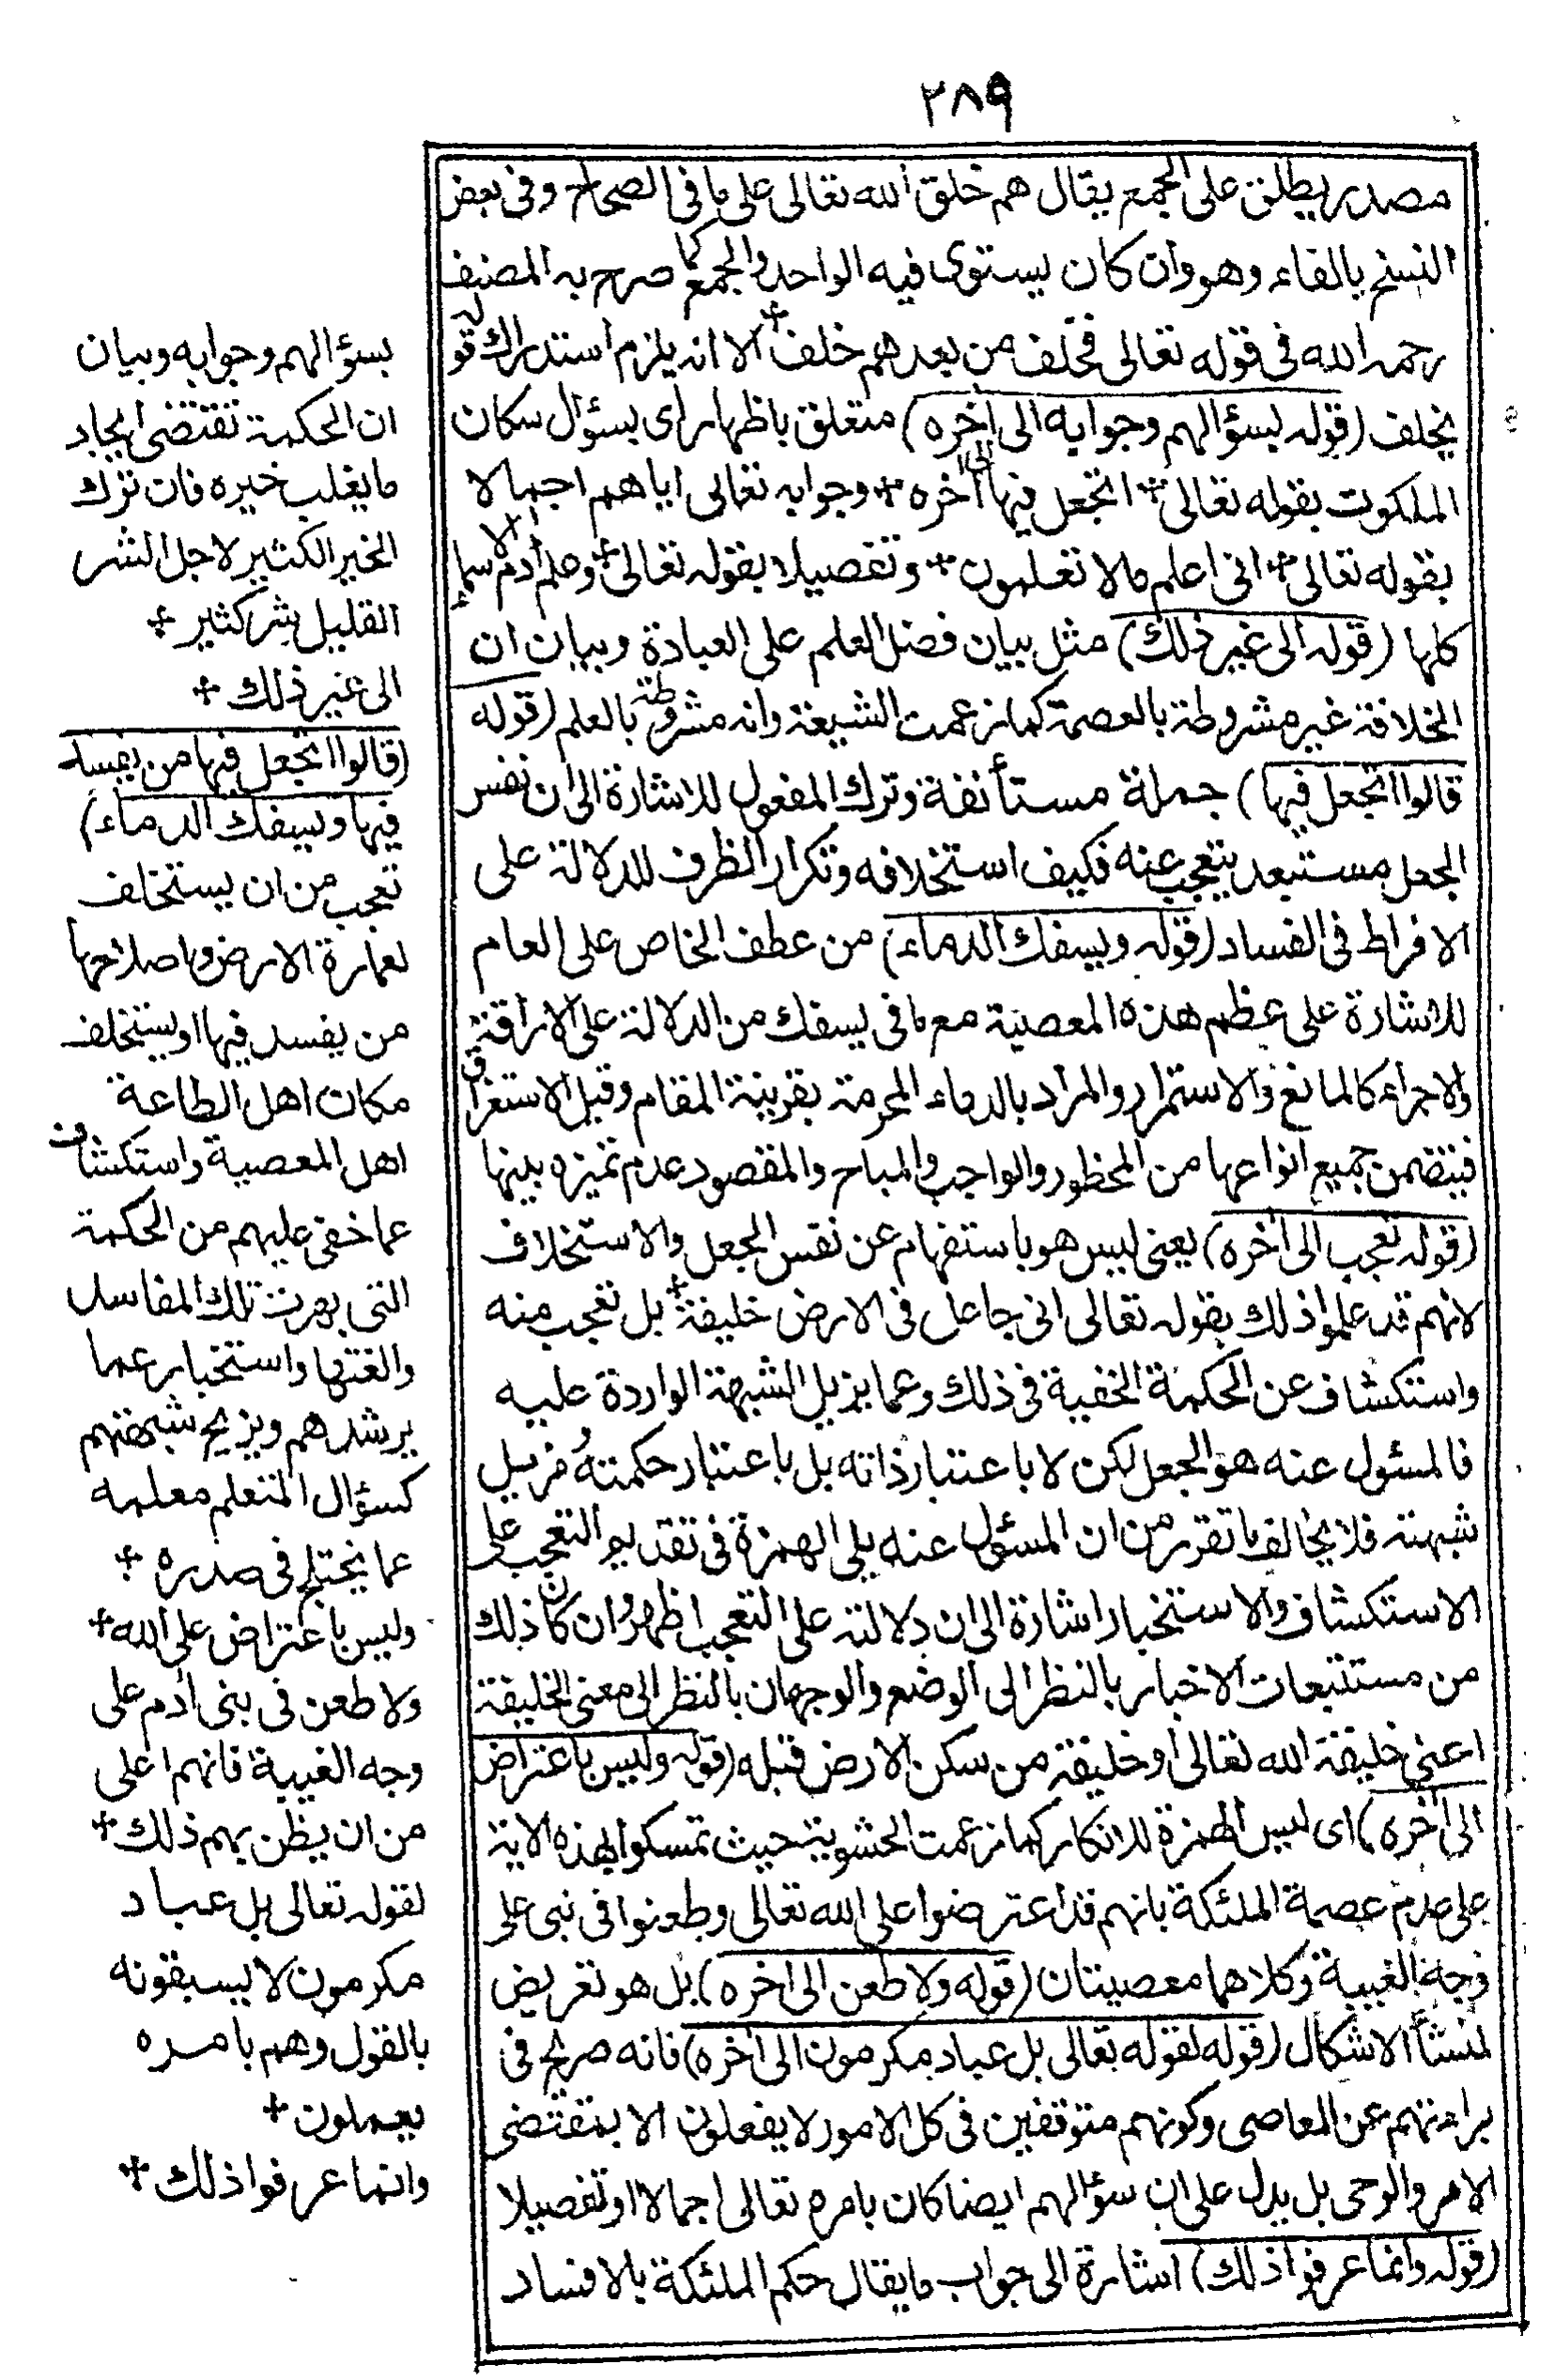 ٢٨٩
مصدر يطلق على الجمع يقال هم خلق الله تعالى على ما فى الصحاح وفى بعض
النسخ بالفاء وهو وان كان يستوى فيه الواحد والجمع كما صرح به المصنف
رحمه الله فى قوله تعالى فخلف من بعدهم خلف + الا انه يلزم استدراك قوله
يخلف (قوله بسؤالهم وجوابه الى اخره) متعلق باظهار اى بسؤال سكان
الملكوت بقوله تعالى + اتجعل فيها الى اخره + وجوابه تعالى اياهم اجمالا
بقوله تعالى + انى اعلم مالا تعلمون + وتفصيلا بقوله تعالى + وعلم أدم الاسماء
كلها (قوله الى غير ذلك) مثل بيان فضل العلم على العبادة وبيان ان
الخلافة غير مشروطة بالعصمة كما زعمت الشيعة وانه مشروطة بالعلم (قوله
قالوا اتجعل فيها) جملة مستأنفة وترك المفعول للاشارة الى ان نفس
الجعل مستبعد يتعجب عنه فكيف استخلافه وتكرار الظرف للدلالة على
الافراط فى الفساد (قوله ويسفك الدماء) من عطف الخاص على العام
للاشارة على عظم هذه المعصية مع ما فى يسفك من الدلالة على الاراقة
والاجراء كالمائع والاستمرار والمراد بالدماء المحرمة بقرينة المقام وقيل الاستغراق
فيتضمن جميع انواعها من المحظور والواجب والمباح والمقصود عدم تميزه بينها
(قوله تعجب الى اخره) يعنى ليس هو باستفهام عن نفس الجعل والاستخلاف
لانهم قد علموا ذلك بقوله تعالى انى جاعل فى الارض خليفة + بل تعجب منه
واستكشاف عن الحكمة الخفية فى ذلك وعما يزيل الشبهة الواردة عليه
فالمسئول عنه هو الجعل لكن لا باعتبار ذاته بل باعتبار حكمته ومزيل
شبهته فلا يخالف ما تقرر من ان المسئول عنه يلى الهمزة فى تقديم التعجب على
الاستكشاف والاستخبار اشارة الى ان دلالته على التعجب اظهر وان كان ذلك
من مستتبعات الاخبار بالنظر الى الوضع والوجهان بالنظر الى معنى الخليفة
اعنى خليفة الله تعالى او خليفة من سكن الارض قبله (قوله وليس باعتراض
الى اخره) اى ليس الهمزة للانكار كما زعمت الحشوية حيث تمسكوا بهذه الاية
على عدم عصمة الملئكة بانهم قد اعترضوا على الله تعالى وطعنوا فى نبى على
وجه الغيبة وكلاهما معصيتان (قوله ولا طعن الى اخره) بل هو تعريض
لمنشأ الاشكال (قوله لقوله تعالى بل عباد مكرمون الى اخره) فانه صريح فى
براءتهم عن المعاصى وكونهم متوقفين فى كل الامور لا يفعلون الا بمقتضى
الامر والوحى بل يدل على ان سؤالهم ايضا كان بامره تعالى اجمالا او تفصيلا
(قوله وانما عرفوا ذلك) اشارة الى جواب ما يقال حكم الملئكة بالافساد
بسؤالهم وجوابه وبيان
ان الحكمة تقتضى ايجاد
ما يغلب خيره فان ترك
الخير الكثير لاجل الشر
القليل شر كثير +
الى غير ذلك +
(قالوا اتجعل فيها من يفسد
فيها ويسفك الدماء)
تعجب من ان يستخلف
لعمارة الارض واصلاحها
من يفسد فيها او يستخلف
مكان اهل الطاعة
اهل المعصية واستكشاف
عما خفى عليهم من الحكمة
التى بهرت تلك المفاسد
والغتها واستخبار عما
يرشدهم ويزيح شبهتهم
كسؤال المتعلم معلمه
عما يختلج فى صدره +
وليس باعتراض على الله +
ولا طعن فى بنى أدم على
وجه الغيبة فانهم اعلى
من ان يظن بهم ذلك +
لقوله تعالى بل عباد
مكرمون لا يسبقونه
بالقول وهم بامره
يعملون +
وانما عرفوا ذلك +